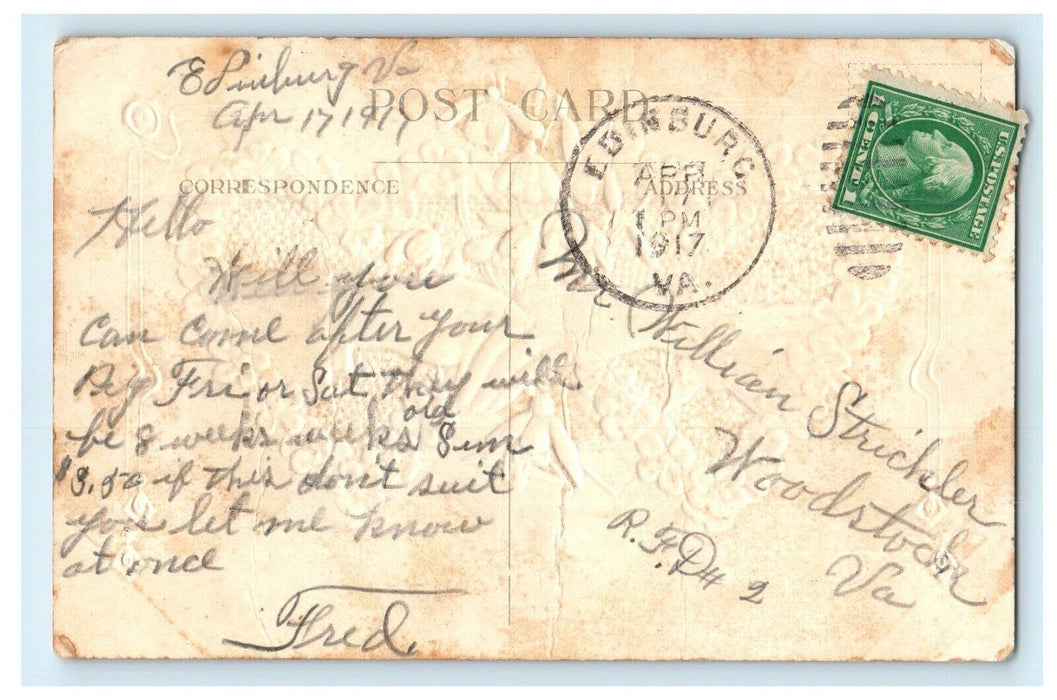 Edinburg Va
Apr 17 1917
POST CARD
CORRESPONDENCE
ADDRESS
EDINBURG
APR
17
1 PM
1917
VA.
U.S. POSTAGE
1 CENT 1
Hello
Will you
Can come after your
Pig Fri or Sat they will
be 8 weeks weeks old
$3.50 if this don't suit
you let me know
at once
Fred.
Mr William Strickler
Woodstock
Va
R.F.D # 2